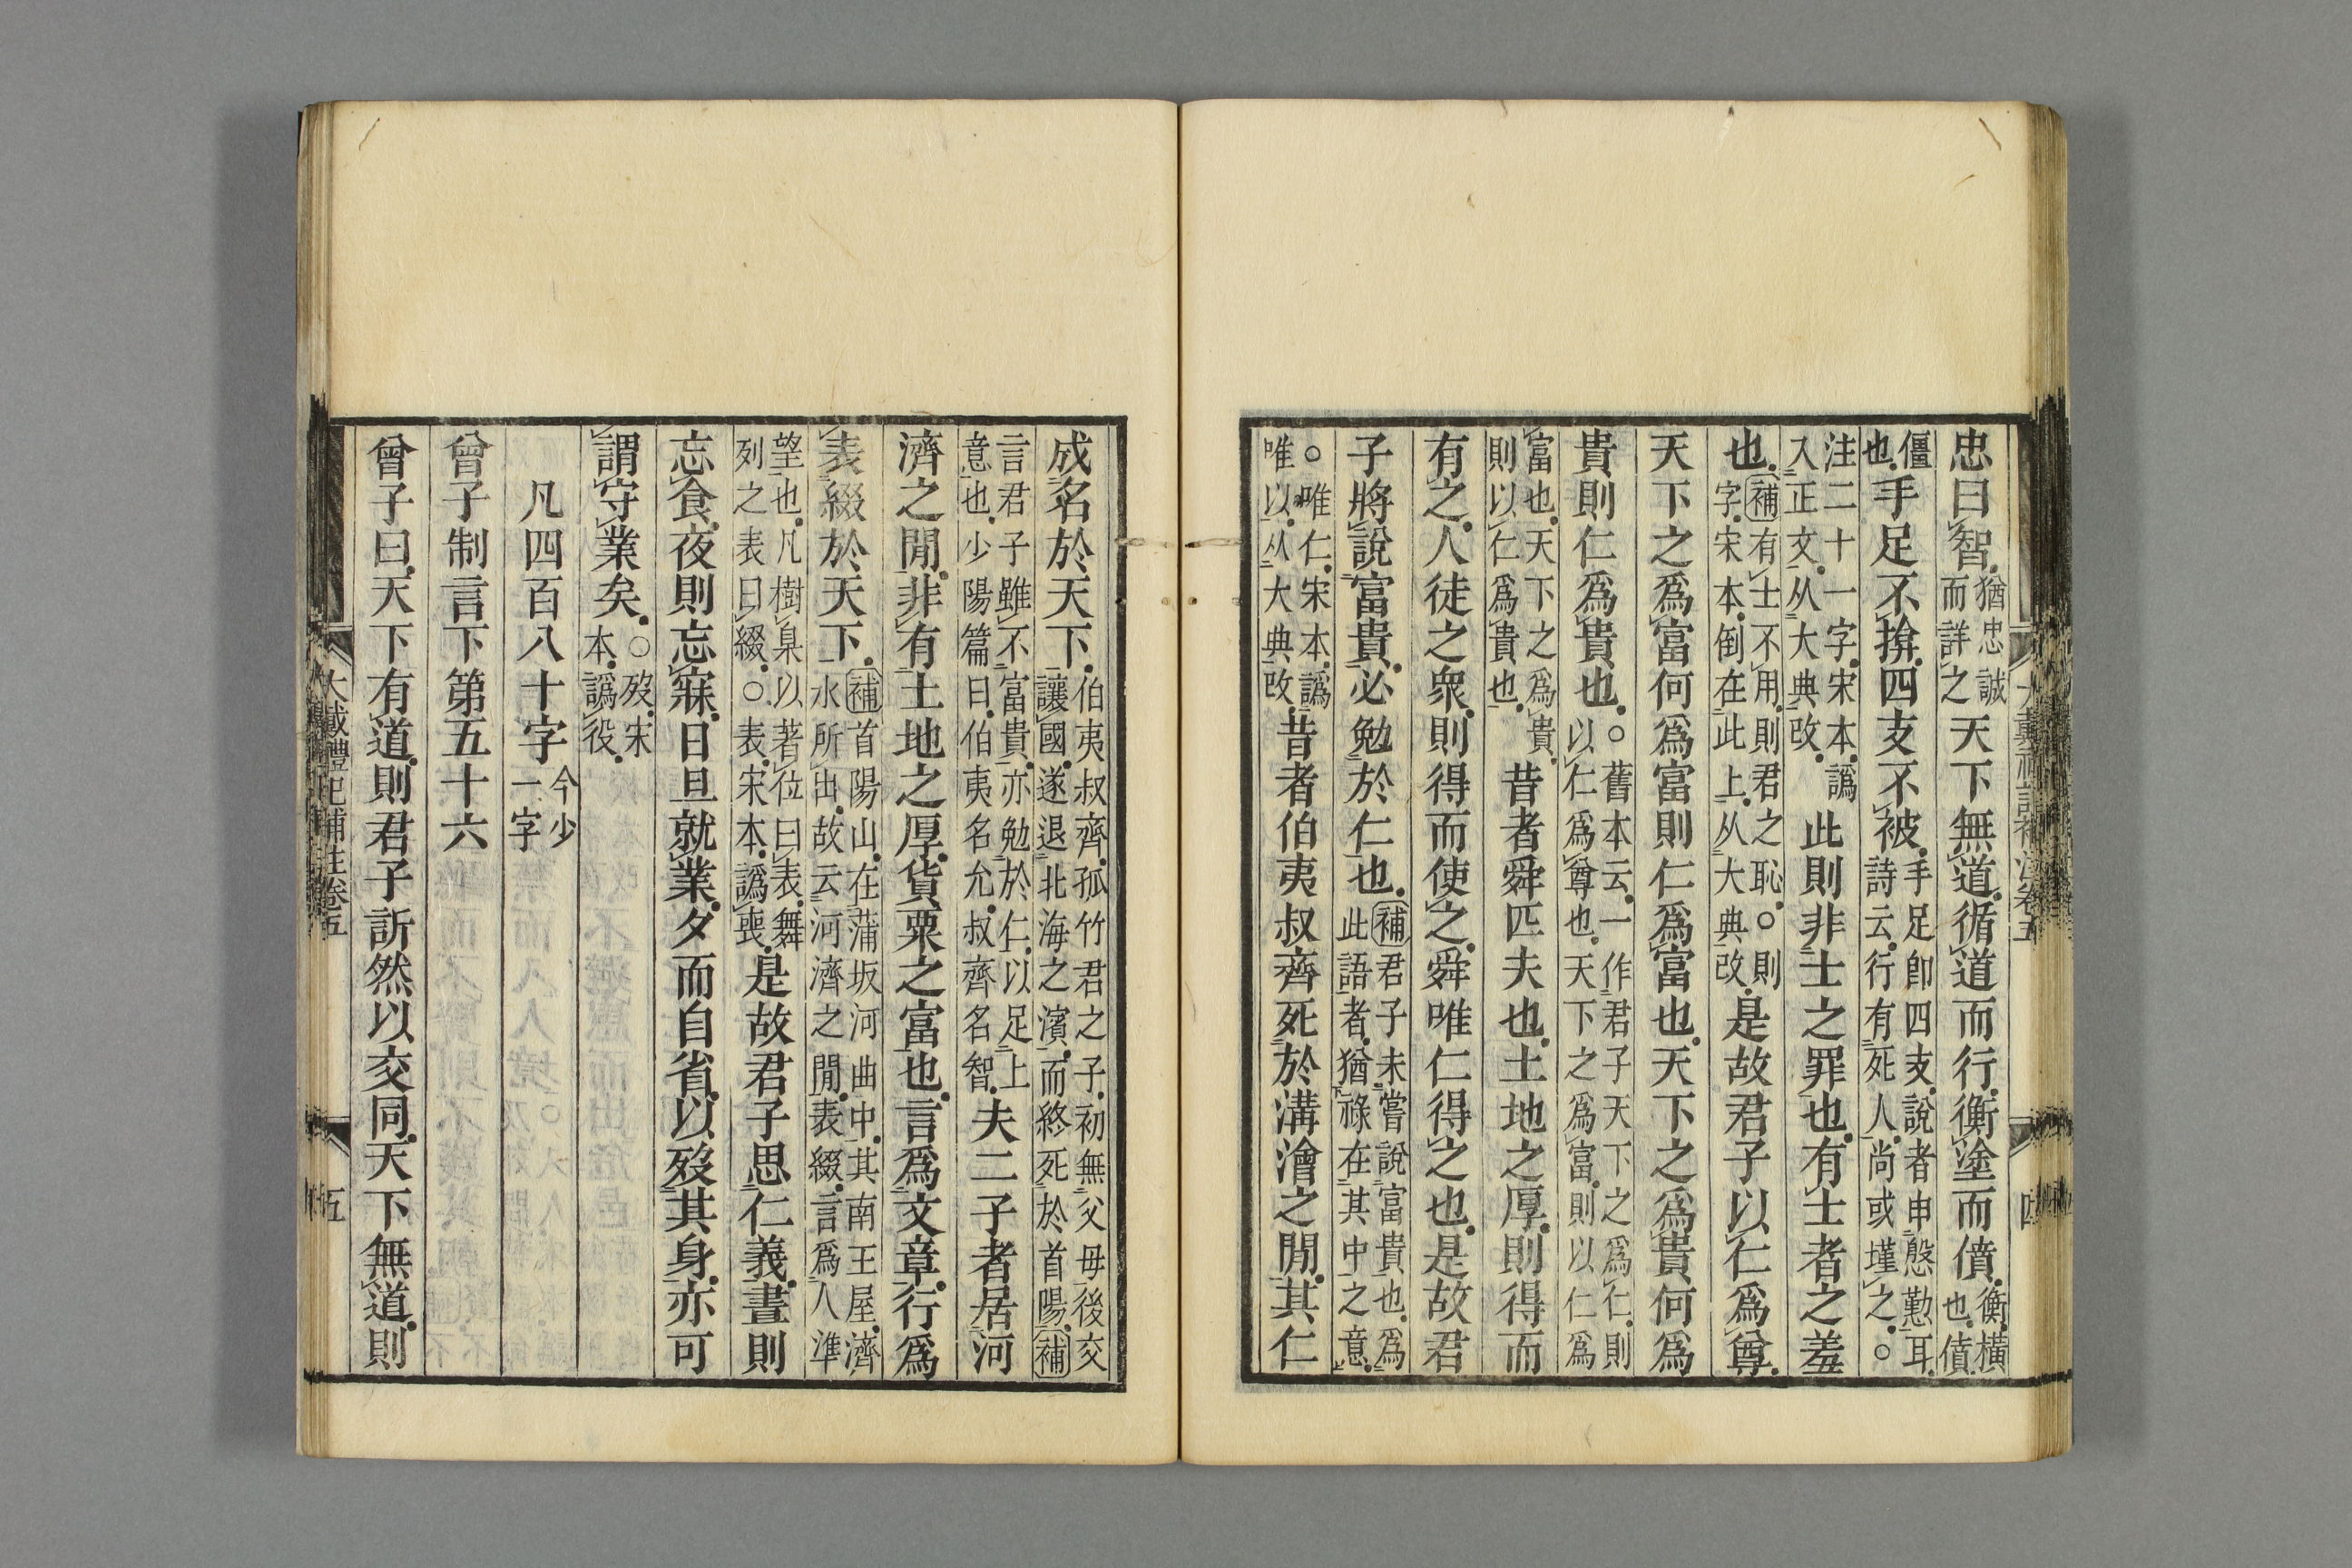 忠曰智猶忠誠而詳之天下無道循道而行衡塗而僨衡橫也僨
僵也手足不揜四支不被手足卽四支說者申慇懃耳詩云行有死人尚或墐之○
注二十一字宋本譌入正文从大典改此則非士之罪也有士者之羞
也補有士不用則君之恥○則字宋本倒在此上从大典改是故君子以仁爲尊
天下之爲富何爲富則仁爲富也天下之爲貴何爲
貴則仁爲貴也○舊本云一作君子天下之爲仁則以仁爲尊也天下之爲富則以仁爲
富也天下之爲貴則以仁爲貴也昔者舜匹夫也土地之厚則得而
有之人徒之衆則得而使之舜唯仁得之也是故君
子將說富貴必勉於仁也補君子未嘗說富貴也爲此語者猶祿在其中之意
○唯仁宋本譌唯以从大典改昔者伯夷叔齊死於溝澮之閒其仁
成名於天下伯夷叔齊孤竹君之子初無父母後交讓國遂退北海之濱而終死於首陽補
言君子雖不富貴亦勉於仁以足上意也少陽篇曰伯夷名允叔齊名智夫二子者居河
濟之閒非有土地之厚貨粟之富也言爲文章行爲
表綴於天下補首陽山在蒲坂河曲中其南王屋濟水所出故云河濟之閒表綴言爲人準
望也凡樹臬以著位曰表舞列之表曰綴○表宋本譌喪是故君子思仁義晝則
忘食夜則忘寐日旦就業夕而自省以歿其身亦可
謂守業矣○歿宋本譌役
凡四百八十字今少一字
曾子制言下第五十六
曾子曰天下有道則君子訢然以交同天下無道則
大戴禮記補注卷五
五